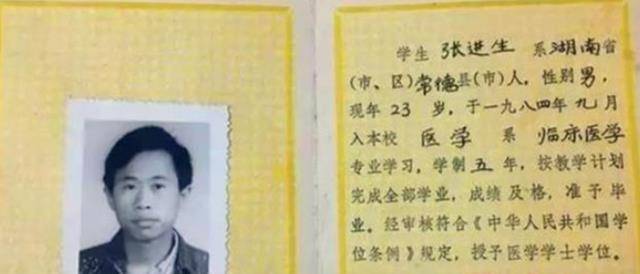 学生 张进生 系湖南省
(市、区)常德县(市)人，性别男，
现年 23 岁，于一九八四年九月
入本校 医学 系 临床医学
专业学习，学制五年，按教学计划
完成全部学业，成绩及格，准予毕
业。经审核符合《中华人民共和国学
位条例》规定，授予医学学士学位。